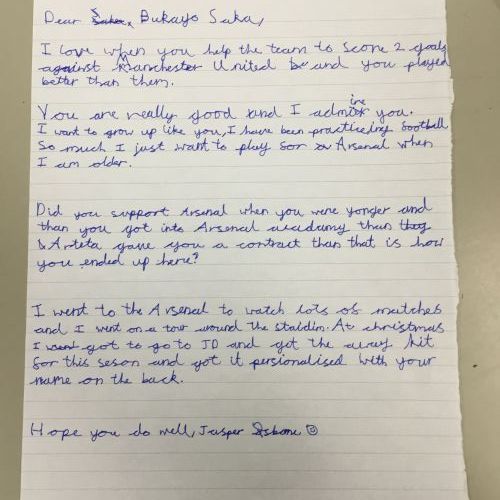 Dear Bukayo Saka,
I love when you help the team to score 2 goals
against Manchester United and you played
better than them.
You are really good and I admire you.
I want to grow up like you, I have been practiceing football
So much I just want to play for Arsenal when
I am older.
Did you support Arsenal when you were yonger and
than you got into Arsenal acadamy than
Arteta gave you a contract than that is how
you ended up here?
I went to the Arsenal to watch lots of matches
and I went on a tour around the staldim. At christmas
I got to go to JD and got the away kit
for this seson and got it persionalised with your
name on the back.
Hope you do well, Jasper